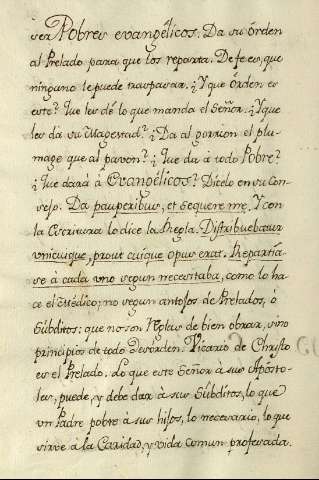 ser Pobres evangélicos. Da su órden
al Prelado para que los reparta. De fe es, que
ninguno le puede traspasar. ¿Y que Órden es
este? Que les dé lo que manda el Señor. ¿Y que
les dá su Magestad? ¿Da al gorrion el plu-
mage que al pavon? ¿Que da á todo Pobre?
¿Que dará á Evangélicos? Dícelo en su Con-
sejo. Da pauperibus, et sequere me. Y con
la Escritura lo dice la Regla. Distribuebatur
unicuique, prout cuíque opus erat. Repartía-
se á cada uno segun necesitaba, como lo ha-
ce el Médico; no segun antojos de Prelados, ó
Súbditos: que no son Reglas de bien obrar, sino
principios de todo desorden. Vicario de Christo
es el Prelado. Lo que este Señor á sus Apósto-
les, puede, y debe dar à sus Súbditos, lo que
un Padre pobre à sus hijos, lo necesario, lo que
sirve à la Caridad, y vida comun profesada.